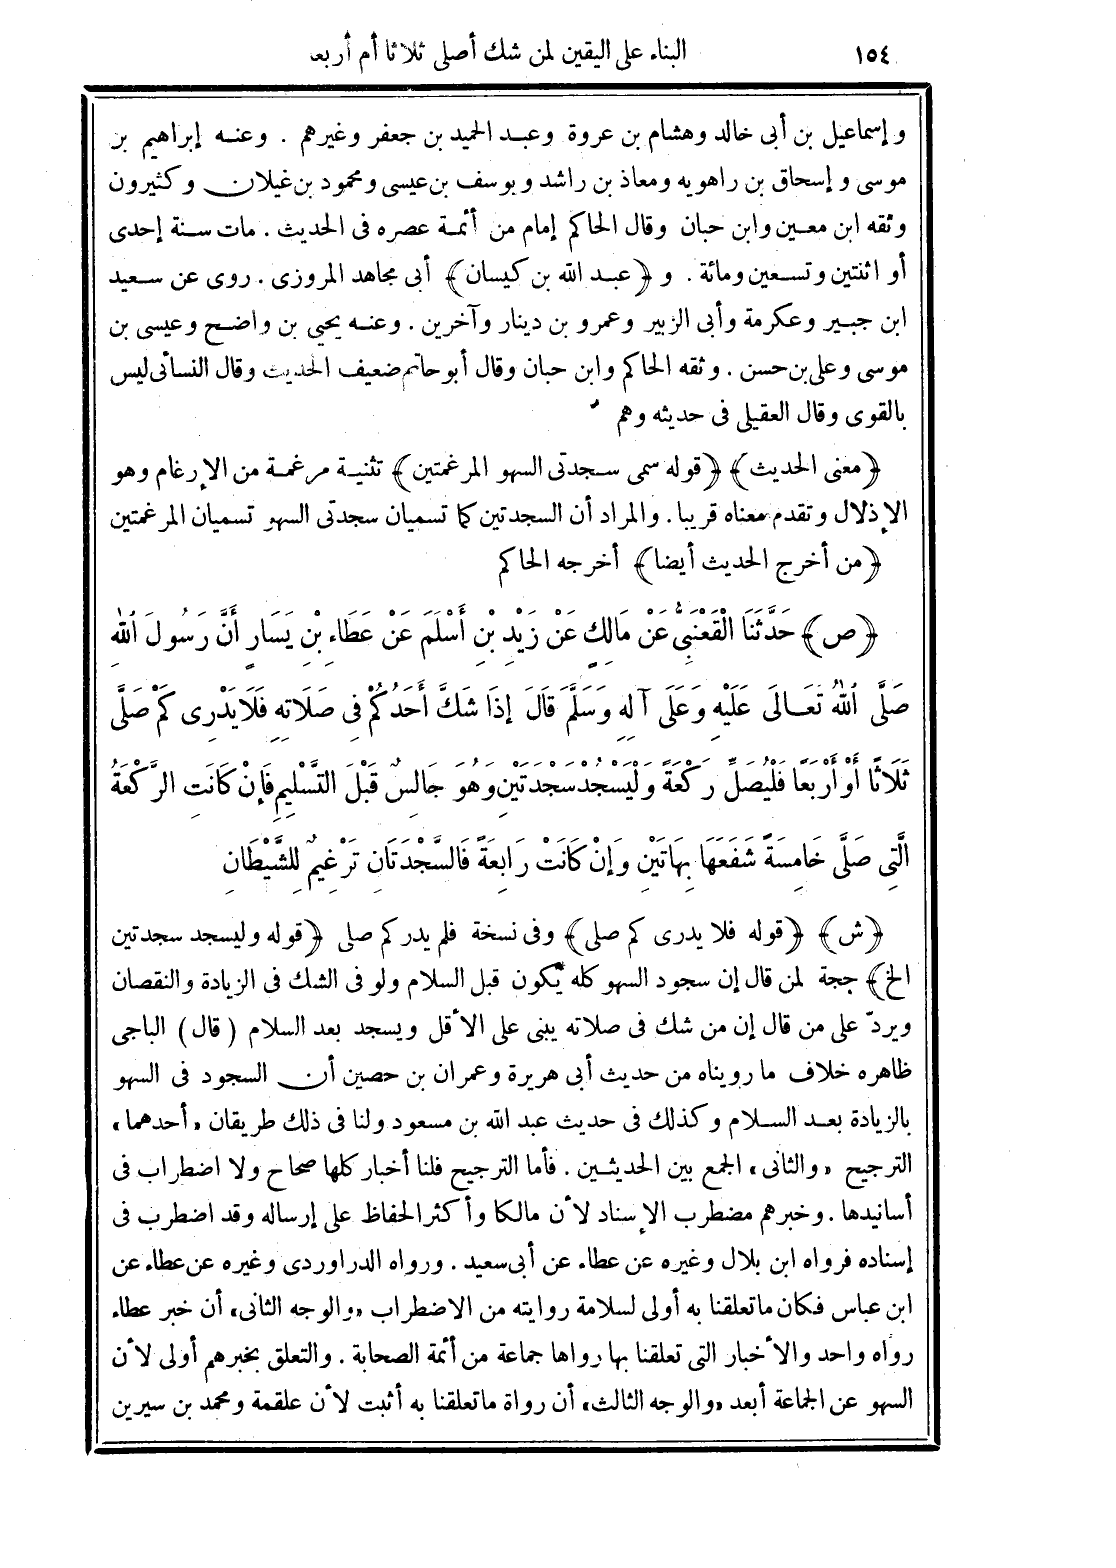 ١٥٤ البناء على اليقين لمن شك أصلى ثلاثا أم أربعا
و إسماعيل بن أبى خالد وهشام بن عروة وعبد الحميد بن جعفر وغيرهم . وعنه إبراهيم بن
موسى و إسحاق بن راهويه ومعاذ بن راشد و يوسف بن عيسى ومحمود بن غيلان وكثيرون
وثقه ابن معين وابن حبان وقال الحاكم إمام من أئمة عصره فى الحديث . مات سنة إحدى
أو اثنتين وتسعين ومائة . و ﴿عبد الله بن كيسان﴾ أبى مجاهد المروزى . روى عن سعيد
ابن جبير وعكرمة وأبى الزبير وعمرو بن دينار وآخرين . وعنه يحيى بن واضح وعيسى بن
موسى وعلى بن حسن . وثقه الحاكم وابن حبان وقال أبو حاتم ضعيف الحديث وقال النسائى ليس
بالقوى وقال العقيلى فى حديثه وهم
﴿معنى الحديث﴾ ﴿قوله سمى سجدتى السهو المرغمتين﴾ تثنية مرغمة من الإرغام وهو
الإذلال وتقدم معناه قريبا . والمراد أن السجدتين كما تسميان سجدتى السهو تسميان المرغمتين
﴿من أخرج الحديث أيضا﴾ أخرجه الحاكم
﴿ص﴾ حَدَّثَنَا الْقَعْنَبِىُّ عَنْ مَالِكٍ عَنْ زَيْدِ بْنِ أَسْلَمَ عَنْ عَطَاءِ بْنِ يَسَارٍ أَنَّ رَسُولَ اللهِ
صَلَّى اللهُ تَعَالَى عَلَيْهِ وَعَلَى آلِهِ وَسَلَّمَ قَالَ إِذَا شَكَّ أَحَدُكُمْ فِى صَلَاتِهِ فَلَا يَدْرِى كَمْ صَلَّى
ثَلَاثًا أَوْ أَرْبَعًا فَلْيُصَلِّ رَكْعَةً وَلْيَسْجُدْ سَجْدَتَيْنِ وَهُوَ جَالِسٌ قَبْلَ التَّسْلِيمِ فَإِنْ كَانَتِ الرَّكْعَةُ
الَّتِى صَلَّى خَامِسَةً شَفَعَهَا بِهَاتَيْنِ وَإِنْ كَانَتْ رَابِعَةً فَالسَّجْدَتَانِ تَرْغِيمٌ لِلشَّيْطَانِ
﴿ش﴾ ﴿قوله فلا يدرى كم صلى﴾ وفى نسخة فلم يدر كم صلى ﴿قوله وليسجد سجدتين
الخ﴾ حجة لمن قال إن سجود السهو كله يكون قبل السلام ولو فى الشك فى الزيادة والنقصان
ويردّ على من قال إن من شك فى صلاته يبنى على الأقل ويسجد بعد السلام (قال) الباجى
ظاهره خلاف ما رويناه من حديث أبى هريرة وعمران بن حصين أن السجود فى السهو
بالزيادة بعد السلام وكذلك فى حديث عبد الله بن مسعود ولنا فى ذلك طريقان «أحدهما»
الترجيح «والثانى» الجمع بين الحديثين . فأما الترجيح فلنا أخبار كلها صحاح ولا اضطراب فى
أسانيدها . وخبرهم مضطرب الإسناد لأن مالكا وأكثر الحفاظ على إرساله وقد اضطرب فى
إسناده فرواه ابن بلال وغيره عن عطاء عن أبى سعيد . ورواه الدراوردى وغيره عن عطاء عن
ابن عباس فكان ما تعلقنا به أولى لسلامة روايته من الاضطراب «والوجه الثانى» أن خبر عطاء
رواه واحد والأخبار التى تعلقنا بها رواها جماعة من أئمة الصحابة . والتعلق بخبرهم أولى لأن
السهو عن الجماعة أبعد «والوجه الثالث» أن رواة ما تعلقنا به أثبت لأن علقمة ومحمد بن سيرين